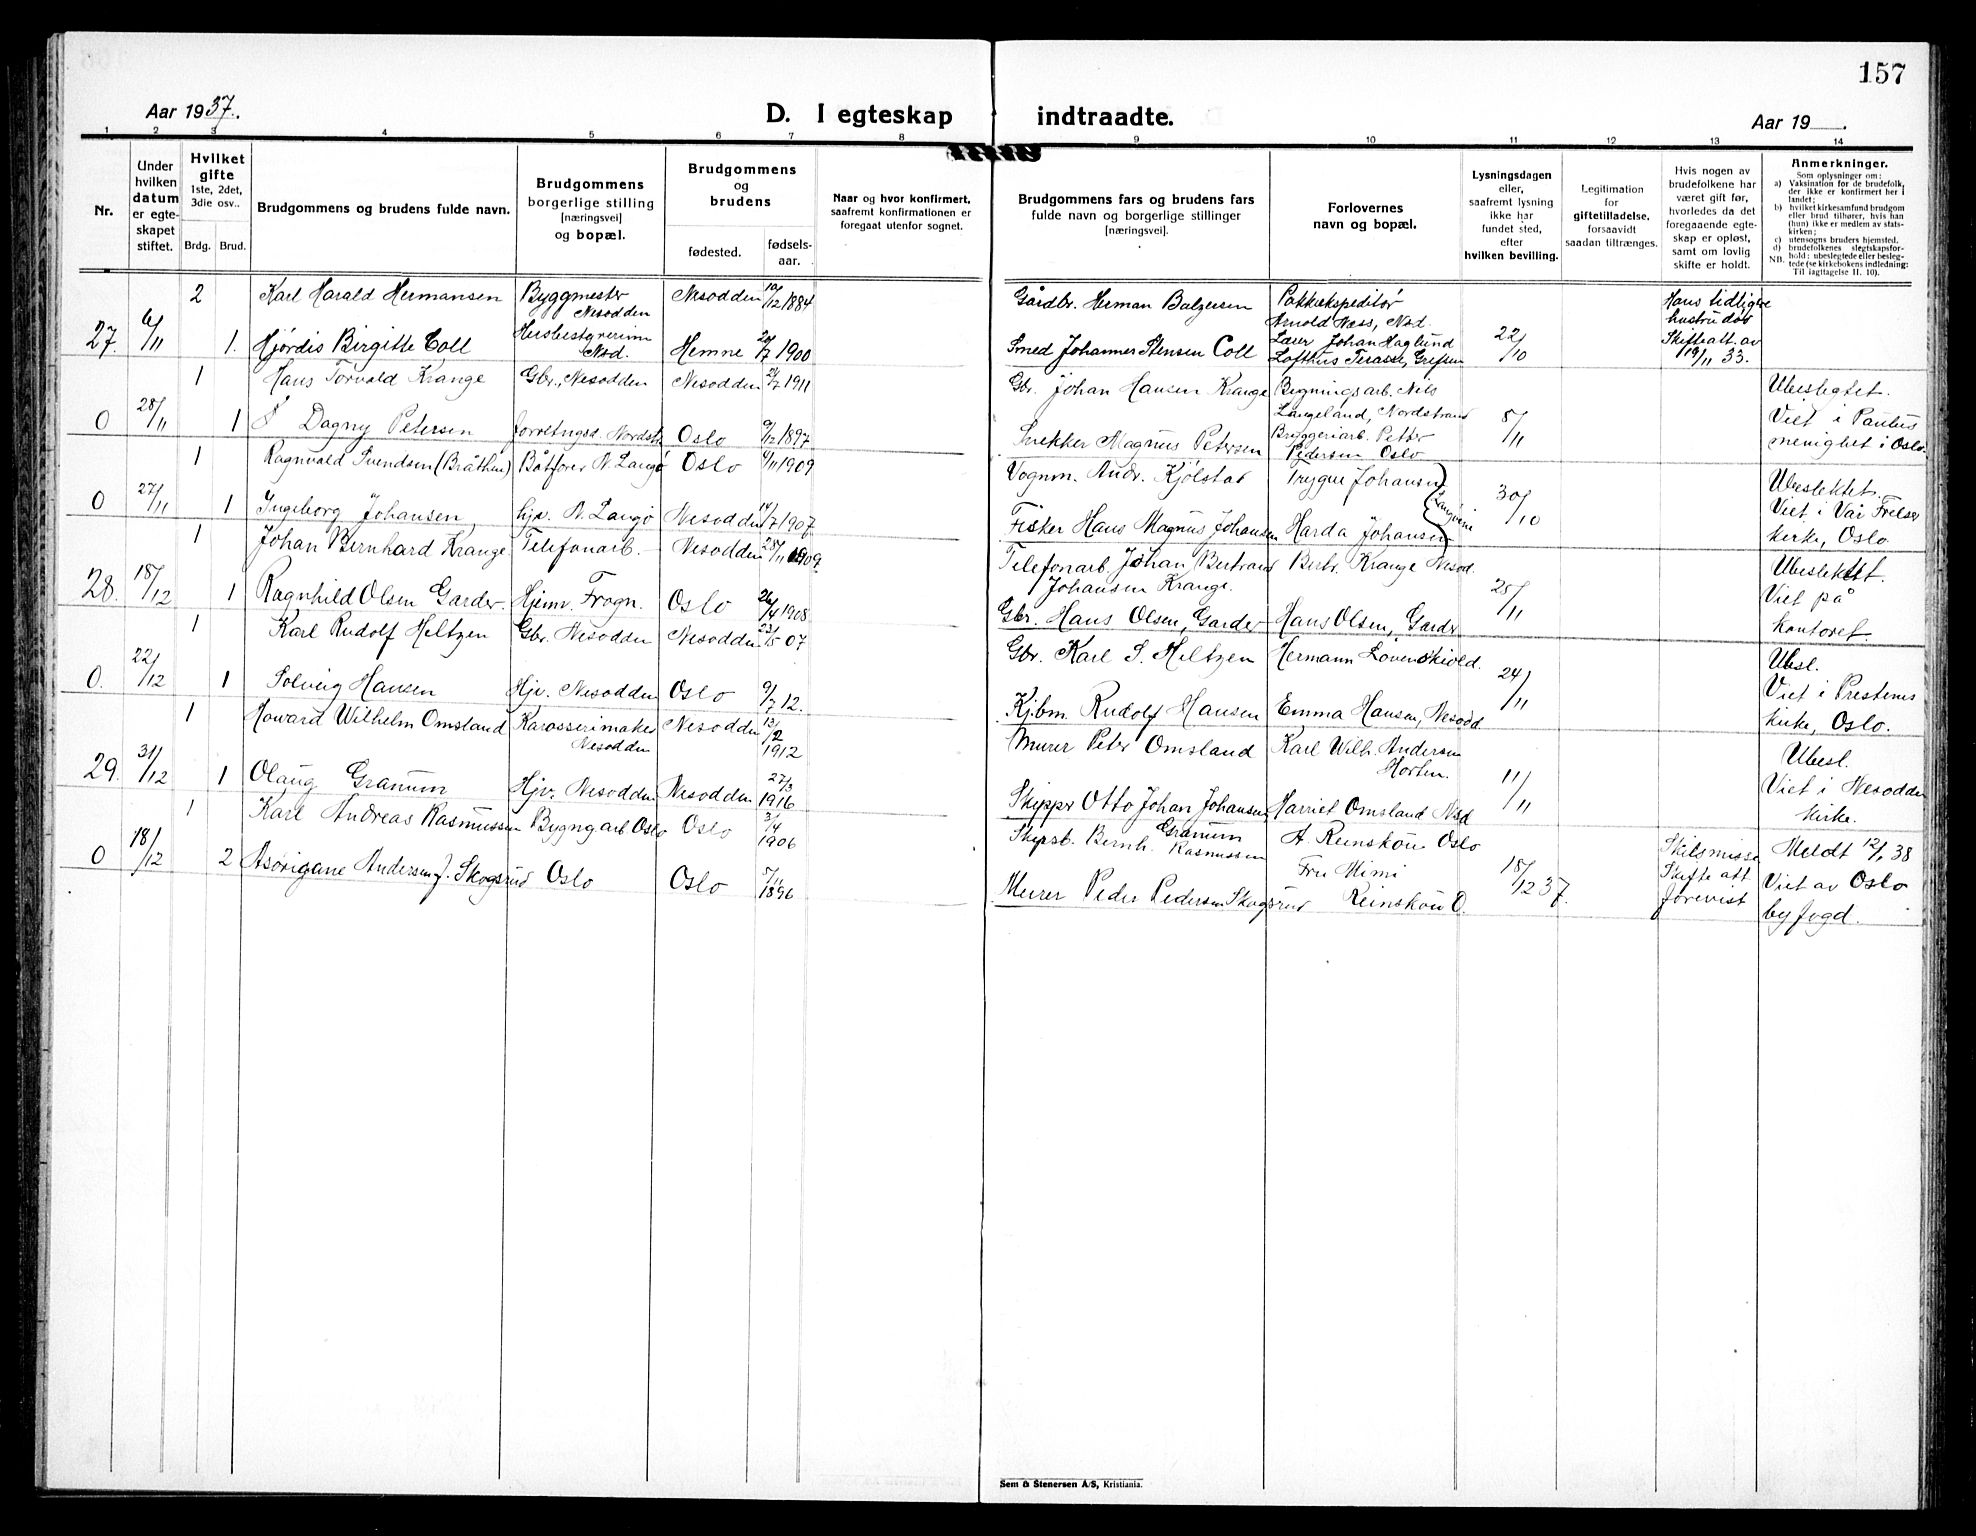 157
Aar 1937.
D. I egteskap indtraadte.
Aar 19
1 2 3 4 5 6 7 8 9 10 11 12 13 14
Nr.
Under hvilken datum er egteskapet stiftet.
Hvilket gifte
1ste, 2det, 3die osv..
Brdg. Brud.
Brudgommens og brudens fulde navn.
Brudgommens borgerlige stilling [næringsvei] og bopæl.
Brudgommens og brudens
fødested.
fødsels-aar.
Naar og hvor konfirmert, saafremt konfirmationen er foregaat utenfor sognet.
Brudgommens fars og brudens fars fulde navn og borgerlige stillinger [næringsvei].
Forlovernes navn og bopæl.
Lysningsdagen eller, saafremt lysning ikke har fundet sted, efter hvilken bevilling.
Legitimation for giftetilladelse, forsaavidt saadan tiltrænges.
Hvis nogen av brudefolkene har været gift før, hvorledes da det foregaaende egteskap er opløst, samt om lovlig skifte er holdt.
Anmerkninger.
Som oplysninger om:
a) Vaksination for de brudefolk, der ikke er konfirmert her i landet;
b) hvilket kirkesamfund brudgom eller brud tilhører, hvis han (hun) ikke er medlem av statskirken;
c) utensogns bruders hjemsted.
d) brudefolkenes slegtskapsforhold: ubeslegtede eller beslegtede (se kirkebokens indledning:
NB. Til iagttagelse II. 10).
2 Karl Harald Hermansen Byggmester Nesodden Nesodden 10/12 1884 Gårdbr. Herman Balzersen Pakkekspeditör Arnold Næss, Nsd. Hans tidligere hustru död
27. 6/11 1. Hjördis Birgitte Coll Husbestyrerinne Nsd. Hemne 20/7 1900 Smed Johannes Stensen Coll Lærer Johan Haglund Lofthus Terasse, Grefsen 22/10 Skifteatt. av 19/11 33.
1 Hans Torvald Krange Gbr., Nesodden Nesodden 21/7 1911 Gbr. Johan Hansen Krange Bygningsarb. Nils Langeland, Nordstrand Ubeslegtet.
0 28/11 1 Dagny Petersen forretngsd. Nordstr. Oslo 9/12 1897 Snekker Magnus Petersen Bryggeriarb. Petter Pedersen Oslo 5/11 Viet i Paulus menighet i Oslo.
1 Ragnvald Svendsen (Bråthen) Båtförer N. Langö Oslo 4/11 1909 Vognm. Andr. Kjölstad Trygve Johansen Ubeslektet.
0 27/11 1 Ingeborg Johansen, hjv. N. Langö Nesodden 14/7 1907 Fisker Hans Magnus Johansen Harda Johansen 30/10 Viet i Vår Frelser kirke, Oslo
1 Johan Bernhard Krange Telefonarb. Nesodden 23/11 1909. Telefonarb. Johan Bertrand Johansen Krange. Bertr. Krange Nesod. Ubeslektet.
28. 18/12 1 Ragnhild Olsen Garder. Hjem. Frogn. Oslo 26/4 1908 Gbr. Hans Olsen, Garder Hans Olsen, Garder 25/11 Viet på kontoret.
1 Karl Rudolf Heltzen Gbr. Nesodden Nesodden 23/5 07 Gbr. Karl S. Heltzen Hermann Lövenskiold. Ubesl.
0. 22/12 1 Solveig Hansen Hjv. Nesodden Oslo 9/7 12. Kjbm. Rudolf Hansen Emma Hansen, Nesodd 24/11 Viet i Prestenes kirke, Oslo.
1 Howard Wilhelm Omsland Karosserimaker Nesodden Nesodden 13/2 1912 Murer Peter Omsland Karl Wilh. Andersen Horten. Ubesl.
29. 31/12 1 Olaug Granum Hjv. Nesodden Nesodden 27/3 1916 Skipper Otto Johan Johansen Granum Harriet Omsland Nsd 11/11 Viet i Nesodden kirke.
1 Karl Andreas Rasmussen Bygngarb Oslo Oslo 3/4 1906 Skipsb. Bernh. Rasmussen A. Reinskou Oslo Skilsmisse Meldt 12/1 38
0 18/12 2 Andersen f. Skogsrud Oslo Oslo 5/11 1896 Murer Peder Pedersen Skogsrud Fru Mimi Reinskou O. 18/12 37. Skifte att forevist Viet av Oslo byfogd.
Sem & Stenersen A/S, Kristiania.